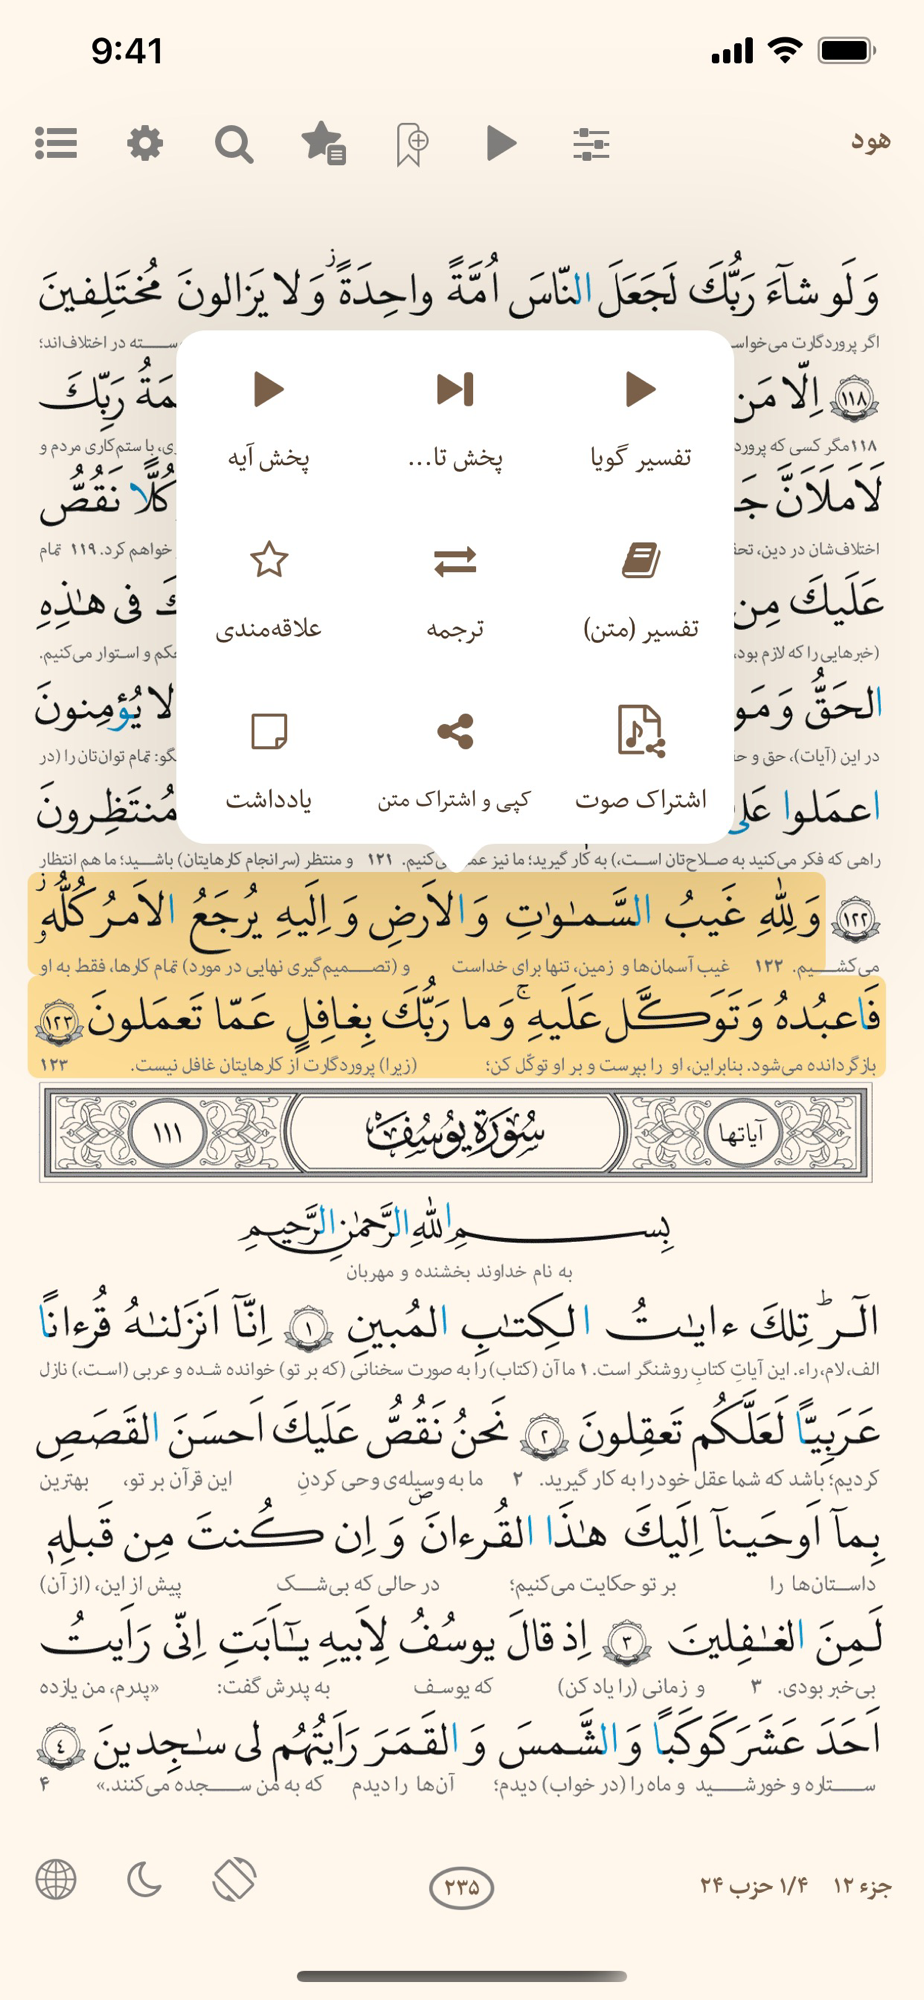 9:41
هود
وَ لَو شآءَ رَبُّكَ لَجَعَلَ النّاسَ اُمَّةً واحِدَةً ۖ وَ لا يَزالونَ مُختَلِفينَ
اگر پروردگارت می‌خواست
در اختلاف‌اند؛
١١٨ اِلّا مَن
رَبِّكَ
۱۱۸ مگر کسی که
با ستم‌کاری مردم و
لَاَملَاَنَّ
كُلًّا نَقُصُّ
اختلاف‌شان در دین،
خواهم کرد. ۱۱۹ تمام
عَلَيكَ مِن
فى هٰذِهِ
(خبرهایی را که لازم بود،
و استوار می‌کنیم.
الحَقُّ وَ
لا يُؤمِنونَ
در این (آیات)، حق و
تمام توان‌تان را (در
اعمَلوا عَلىٰ
مُنتَظِرونَ
پخش آیه
پخش تا...
تفسیر گویا
علاقه‌مندی
ترجمه
تفسیر (متن)
یادداشت
کپی و اشتراک متن
اشتراک صوت
راهی که فکر می‌کنید به صلاح‌تان است،) به کار گیرید؛ ما نیز عمل می‌کنیم. ۱۲۱ و منتظر (سرانجام کارهایتان) باشید؛ ما هم انتظار
١٢٢ وَ لِلّٰهِ غَيبُ السَّمٰوٰتِ وَ الاَرضِ وَ اِلَيهِ يُرجَعُ الاَمرُ كُلُّهٗ
می‌کشیم. ۱۲۲ غیب آسمان‌ها و زمین، تنها برای خداست و (تصمیم‌گیری نهایی در مورد) تمام کارها، فقط به او
فَاعبُدهُ وَ تَوَكَّل عَلَيهِ ۚ وَ ما رَبُّكَ بِغافِلٍ عَمّا تَعمَلونَ ١٢٣
بازگردانده می‌شود. بنابراین، او را بپرست و بر او توکّل کن؛ (زیرا) پروردگارت از کارهایتان غافل نیست. ۱۲۳
آیاتها سُورَةُ يوسُف ١١١
بِسمِ اللهِ الرَّحمٰنِ الرَّحيمِ
به نام خداوند بخشنده و مهربان
الٓرٰ تِلكَ ءايٰتُ الكِتٰبِ المُبينِ ١ اِنّآ اَنزَلنٰهُ قُرءانًا
الف، لام، راء. این آیاتِ کتابِ روشنگر است. ۱ ما آن (کتاب) را به صورت سخنانی (که بر تو) خوانده شده و عربی (است،) نازل
عَرَبِيًّا لَعَلَّكُم تَعقِلونَ ٢ نَحنُ نَقُصُّ عَلَيكَ اَحسَنَ القَصَصِ
کردیم؛ باشد که شما عقل خود را به کار گیرید. ۲ ما به وسیله‌ی وحی کردنِ این قرآن بر تو، بهترین
بِمآ اَوحَينآ اِلَيكَ هٰذَا القُرءانَ ۖ وَ اِن كُنتَ مِن قَبلِهٖ
داستان‌ها را بر تو حکایت می‌کنیم؛ در حالی که بی‌شک پیش از این، (از آن)
لَمِنَ الغٰفِلينَ ٣ اِذ قالَ يوسُفُ لِاَبيهِ يٰٓاَبَتِ اِنّى رَاَيتُ
بی‌خبر بودی. ۳ و زمانی (را یاد کن) که یوسف به پدرش گفت: «پدرم، من یازده
اَحَدَ عَشَرَ كَوكَبًا وَ الشَّمسَ وَ القَمَرَ رَاَيتُهُم لى سٰجِدينَ ٤
ستاره و خورشید و ماه را (در خواب) دیدم؛ آن‌ها را دیدم که به من سجده می‌کنند.» ۴
جزء ۱۲ ۱/۴ حزب ۲۴
۲۳۵